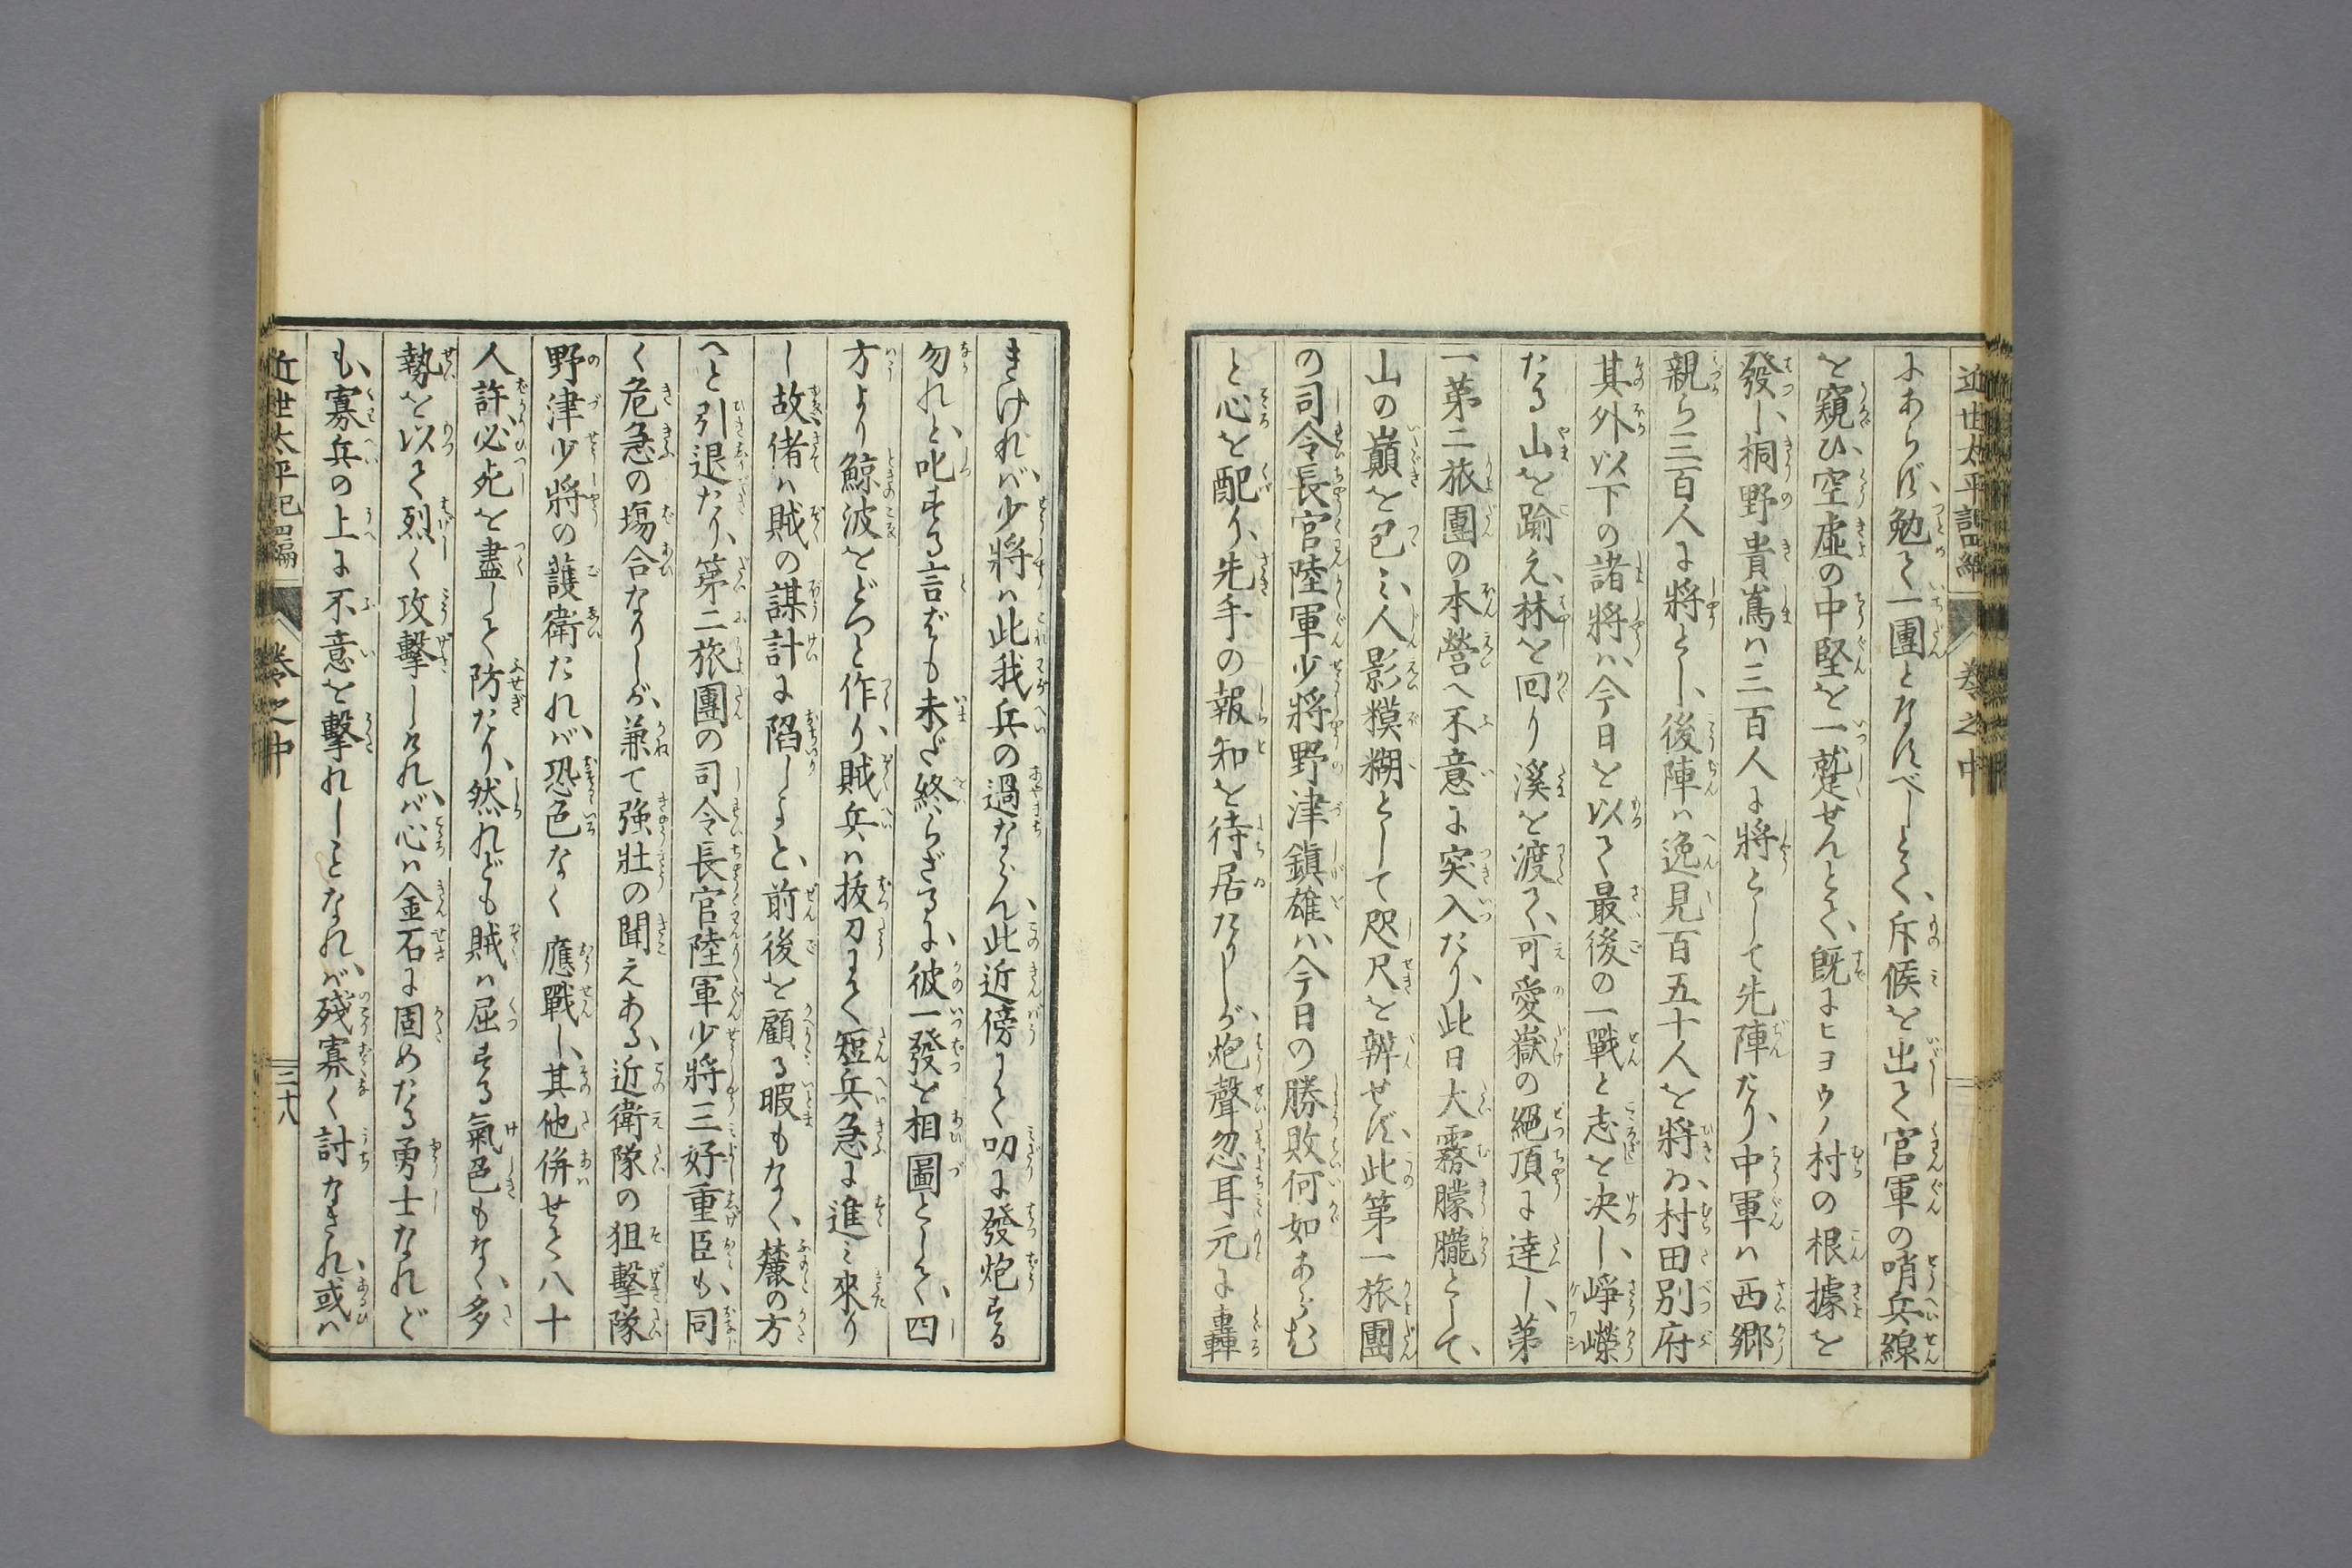 近世太平記四編 卷之中
にあらず、勉て一團となすべしとて、斥候を出て官軍の哨兵線
を窺ひ、空虛の中堅を一蹴せんとて、既にヒヨウノ村の根據を
發し、桐野貴嶌ハ三百人に將として先陣たり、中軍ハ西郷
親ら三百人に將とし、後陣ハ逸見百五十人を將ゐ、村田別府
其外以下の諸將ハ、今日を以て最後の一戰と志を决し、崢嶸
たる山を踰え、林を回り溪を渡て、可愛嶽の絕頂に達し、第
一第二旅團の本營へ不意に突入たり、此日大霧朦朧として、
山の巓を包ミ、人影糢糊として咫尺を辨せず、此第一旅團
の司令長官陸軍少將野津鎭雄ハ、今日の勝敗何如あらむ
と心を配り、先手の報知を待居たりしが、炮聲忽耳元に轟
きけれバ、少將ハ此我兵の過ならん、此近傍にて叨に發炮する
勿れと、叱する言ばも未だ終らざるに、彼一發を相圖として、四
方より鯨波をどつと作り、賊兵ハ拔刀にて短兵急に進ミ來り
し故、偖ハ賊の謀計に陷しよと、前後を顧る暇もなく、麓の方
へと引退たり、第二旅團の司令長官陸軍少將三好重臣も、同
く危急の塲合なりしが、兼て强壯の聞えある、近衞隊の狙擊隊
野津少將の護衞たれバ、恐色なく應戰し、其他併せて八十
人許、必死を盡して防たり、然れども賊ハ屈する氣色もなく、多
勢を以て烈く攻擊しけれバ、心ハ金石に固めたる勇士なれど
も、寡兵の上に不意を擊れしことなれバ、殘寡く討なされ、或ハ
近世太平記四編 卷之中 三十八